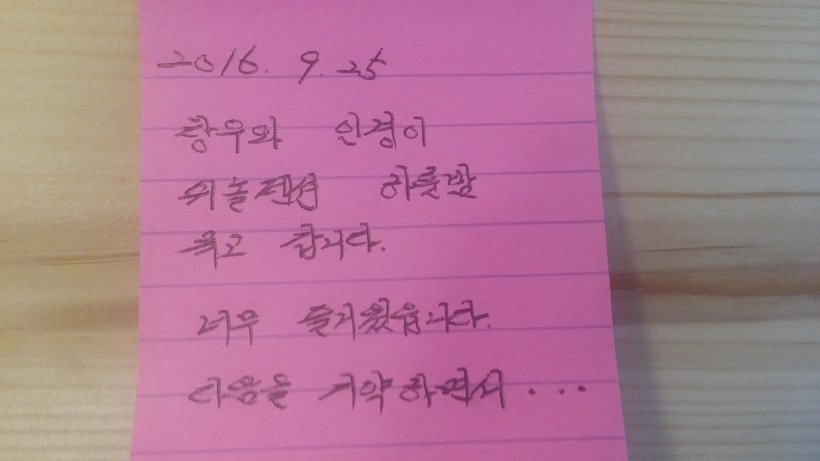 2016. 9. 25
창우와 인경이
쉬놀펜션 하룻밤
묵고 갑니다.
너무 즐거웠습니다.
다음을 기약하면서...